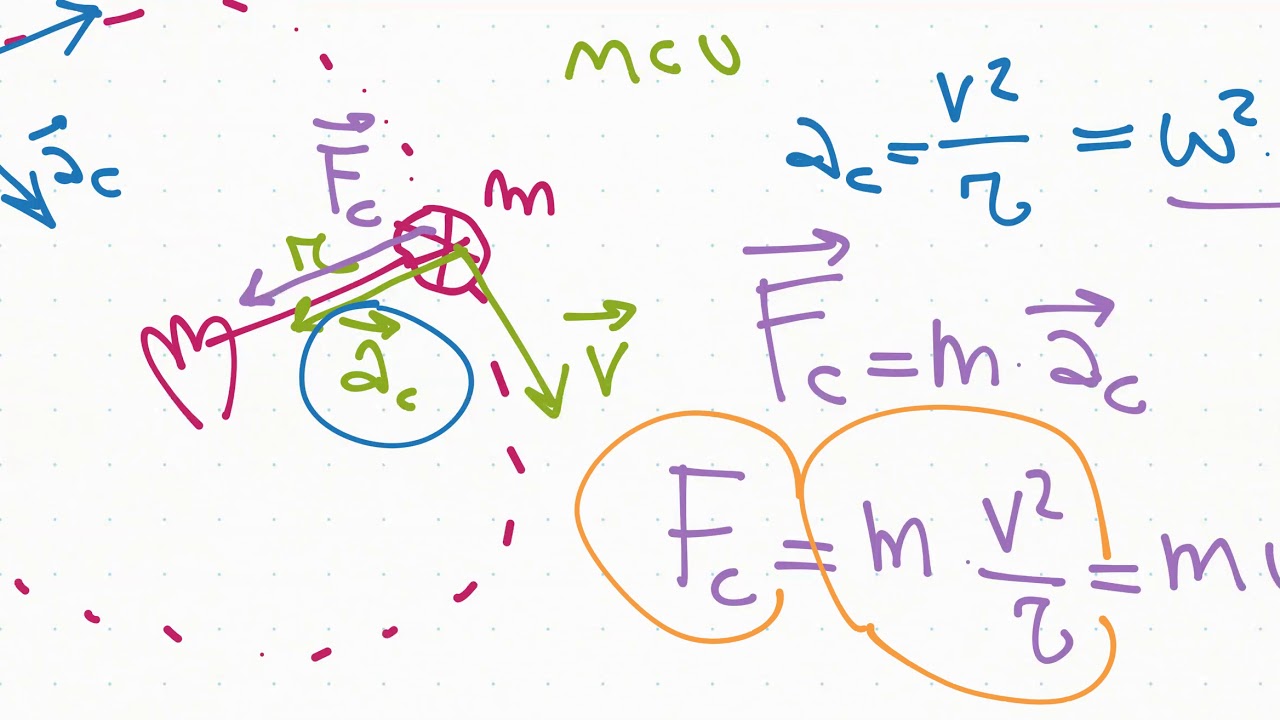 mcu
a⃗c
F⃗c
m
r
a⃗c
v⃗
ac = v²/r = ω² ·
F⃗c = m · a⃗c
Fc = m · v²/r = m